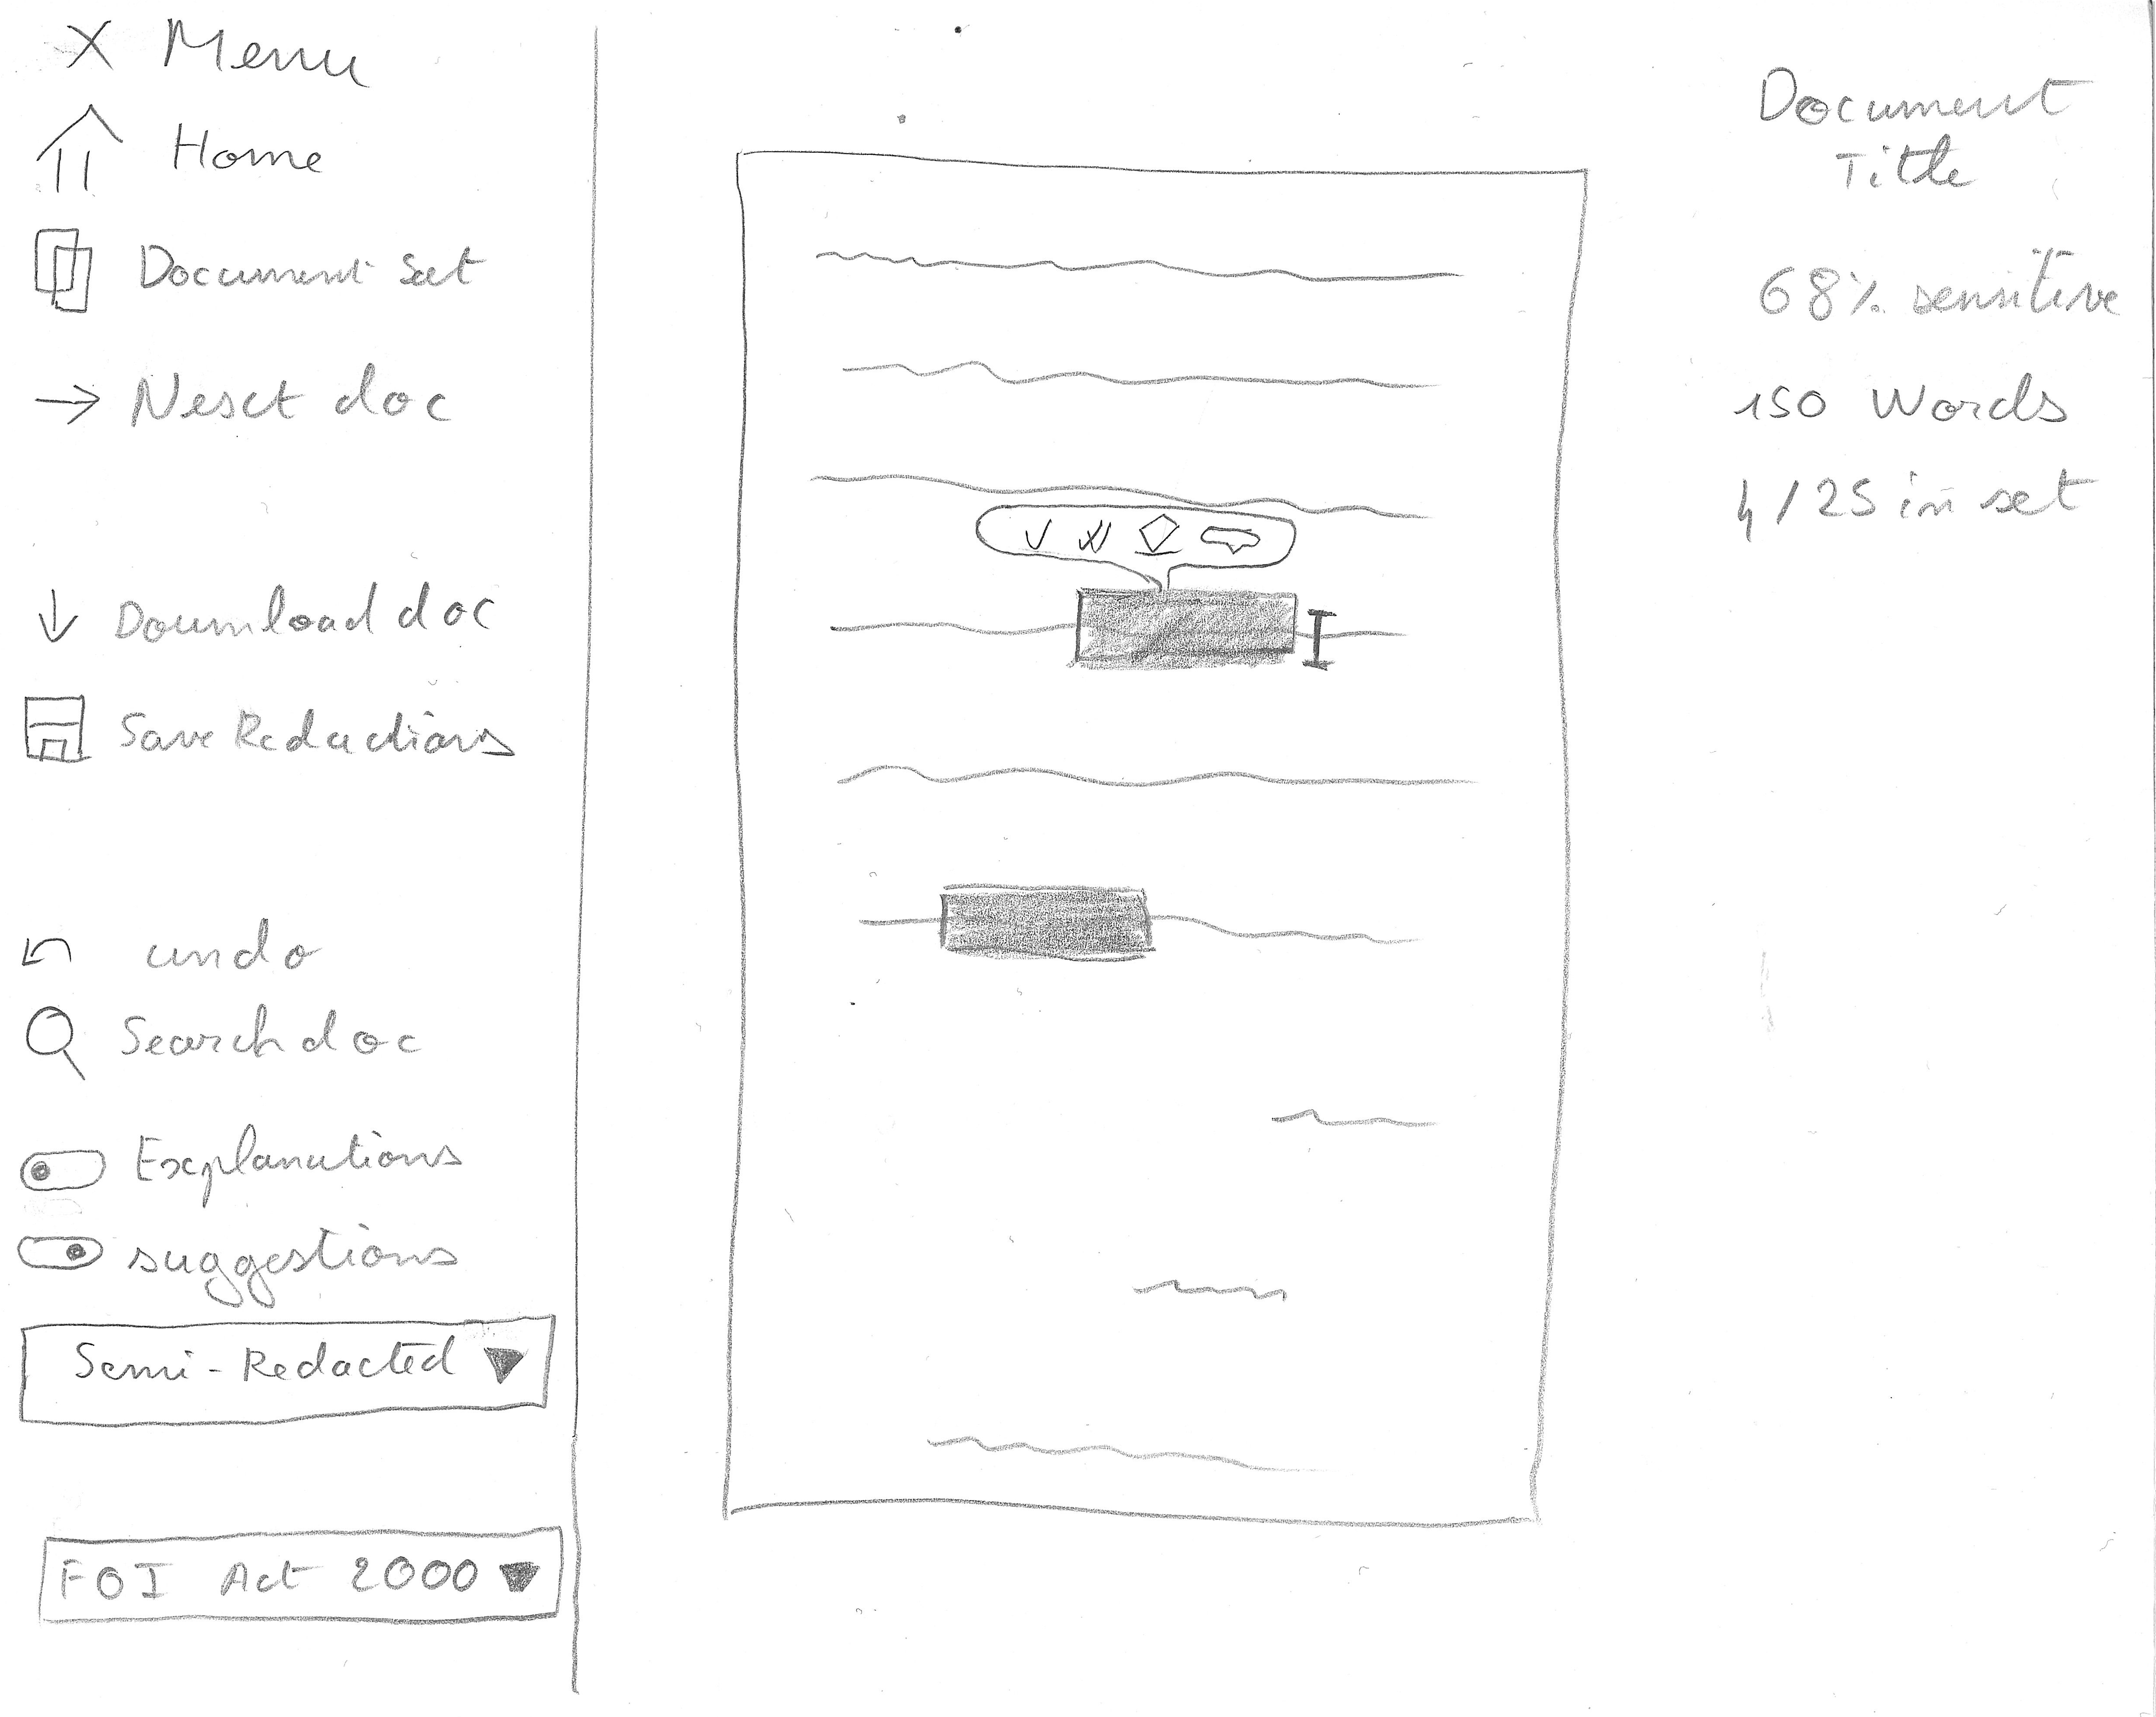 X Menu
Home
Document Set
→ Next doc
↓ Download doc
Save Redactions
undo
Search doc
Explanations
suggestions
Semi-Redacted ▼
FOI Act 2000 ▼
Document
Title
68% sensitive
150 Words
4/25 in set